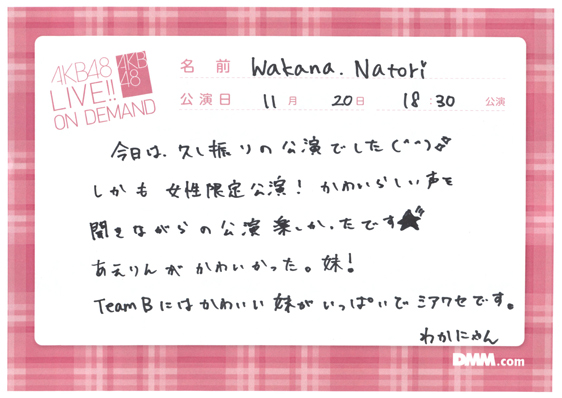 AKB48
LIVE!!
ON DEMAND
AKB
48
名前 Wakana. Natori
公演日 11月 20日 18:30 公演
今日は、久し振りの公演でした(^^)
しかも 女性限定公演! かわいらしい声を
聞きながらの公演 楽しかったです★
あえりんが かわいかった。妹!
TeamBにはかわいい妹がいっぱいでミアワセです。
わかにゃん
DMM.com